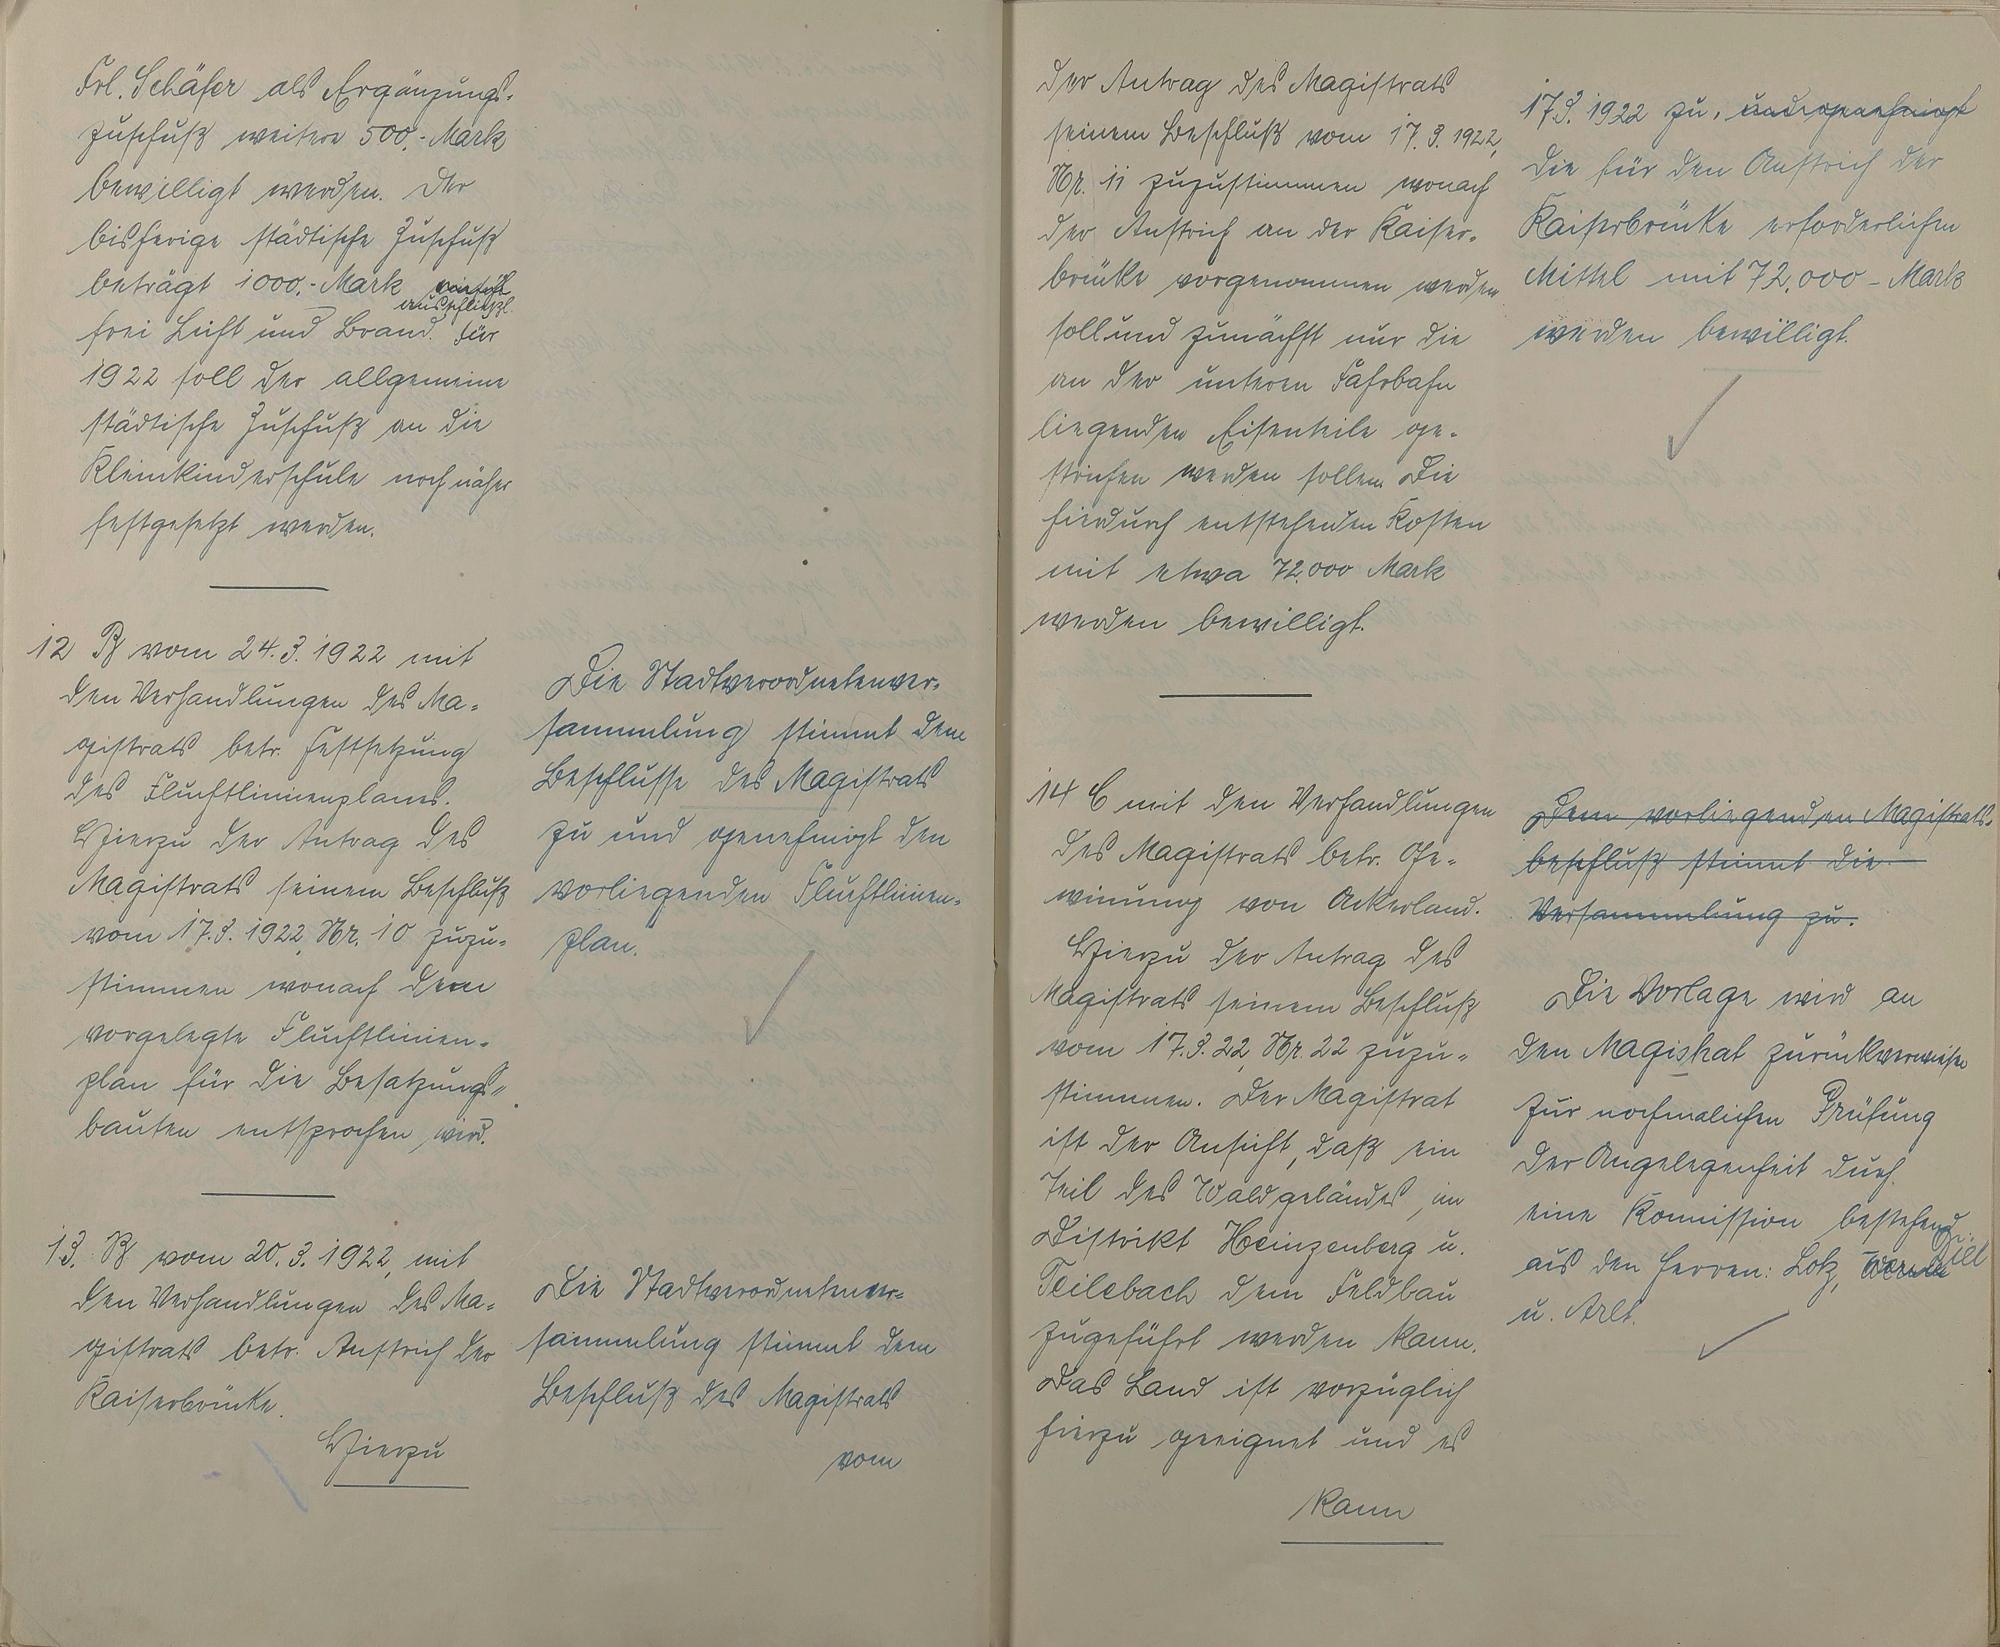 Frl. Schäfer als Ergänzungs-
zuschuß weitere 500,- Mark
bewilligt werden. Der
bisherige städtische Zuschuß
beträgt 1000,- Mark
ausschließl.
frei Licht und Brand. Für
1922 soll der allgemeine
städtische Zuschuß an die
Kleinkinderschule noch näher
festgesetzt werden.
12 B vom 24.3.1922 mit
den Verhandlungen des Ma-
gistrats betr. Festsetzung
des Fluchtlinienplanes.
Hierzu der Antrag des
Magistrats seinem Beschluß
vom 17.3.1922, Nr. 10 zuzu-
stimmen wonach dem
vorgelegte Fluchtlinien-
plan für die Besatzungs-
bauten entsprochen wird.
Die Stadtverordnetenver-
sammlung stimmt dem
Beschlusse des Magistrats
zu und genehmigt den
vorliegenden Fluchtlinien-
plan.
13. B vom 20.3.1922, mit
den Verhandlungen des Ma-
gistrats betr. Anstrich der
Kaiserbrücke.
Hierzu
Die Stadtverordnetenver-
sammlung stimmt dem
Beschluß des Magistrats
vom
der Antrag des Magistrats
seinem Beschluß vom 17.3.1922,
Nr. 11 zuzustimmen wonach
der Anstrich an der Kaiser-
brücke vorgenommen werden
soll und zunächst nur die
an der unteren Fahrbahn
liegenden Eisenteile ge-
strichen werden sollen. Die
hierdurch entstehenden Kosten
mit etwa 72.000 Mark
werden bewilligt.
17.3.1922 zu, und genehmigt
Die für den Anstrich der
Kaiserbrücke erforderlichen
Mittel mit 72.000 - Mark
werden bewilligt.
14 C mit den Verhandlungen
des Magistrats betr. Ge-
winnung von Ackerland.
Hierzu der Antrag des
Magistrats seinem Beschluß
vom 17.3.22, Nr. 22 zuzu-
stimmen. Der Magistrat
ist der Ansicht, daß ein
Teil des Waldgeländes, im
Distrikt Heinzenberg u.
Teilebach dem Feldbau
zugeführt werden kann.
Das Land ist vorzüglich
hierzu geeignet und es
kann
Dem vorliegenden Magistrats-
beschluß stimmt die
Versammlung zu.
Die Vorlage wird an
den Magistrat zurückverwiesen
zur nochmalichen Prüfung
der Angelegenheit durch
eine Kommission bestehend
aus den Herren: Lotz,
u. Arlt.